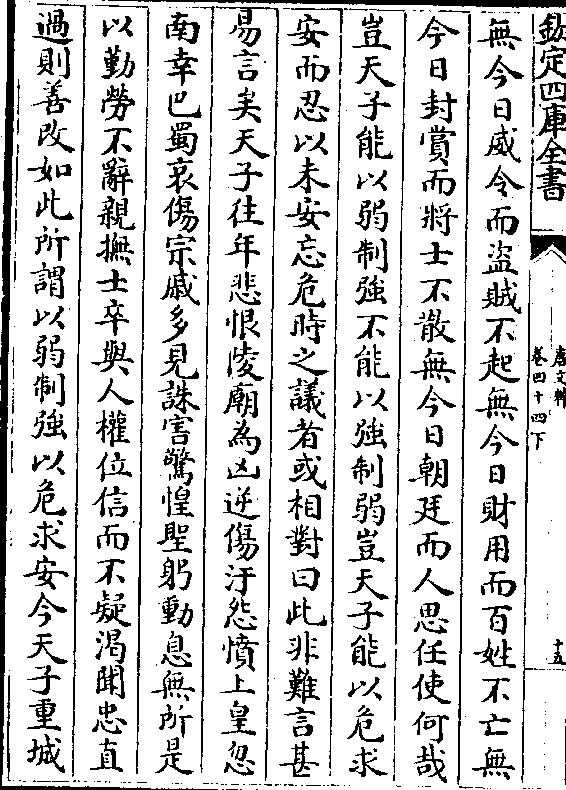 欽定四庫全書
唐文粹
卷四十四下
十五
無今日威令而盜賊不起無今日財用而百姓不亡無
今日封賞而將士不散無今日朝廷而人思任使何哉
豈天子能以弱制強不能以強制弱豈天子能以危求
安而忍以未安忘危時之議者或相對曰此非難言甚
易言矣天子往年悲恨陵廟為凶逆傷汙怨憤上皇忽
南幸巴蜀哀傷宗戚多見誅害驚惶聖躬動息無所是
以勤勞不辭親撫士卒與人權位信而不疑渴聞忠直
過則善改如此所謂以弱制強以危求安今天子重城